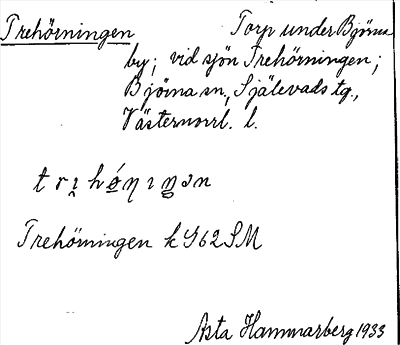 Trehörningen Torp under Björna
by; vid sjön Trehörningen;
Björna sn, Själevads tg.,
Västernorrl. l.
Trehörningen k 962 SM
Asta Hammarberg 1933